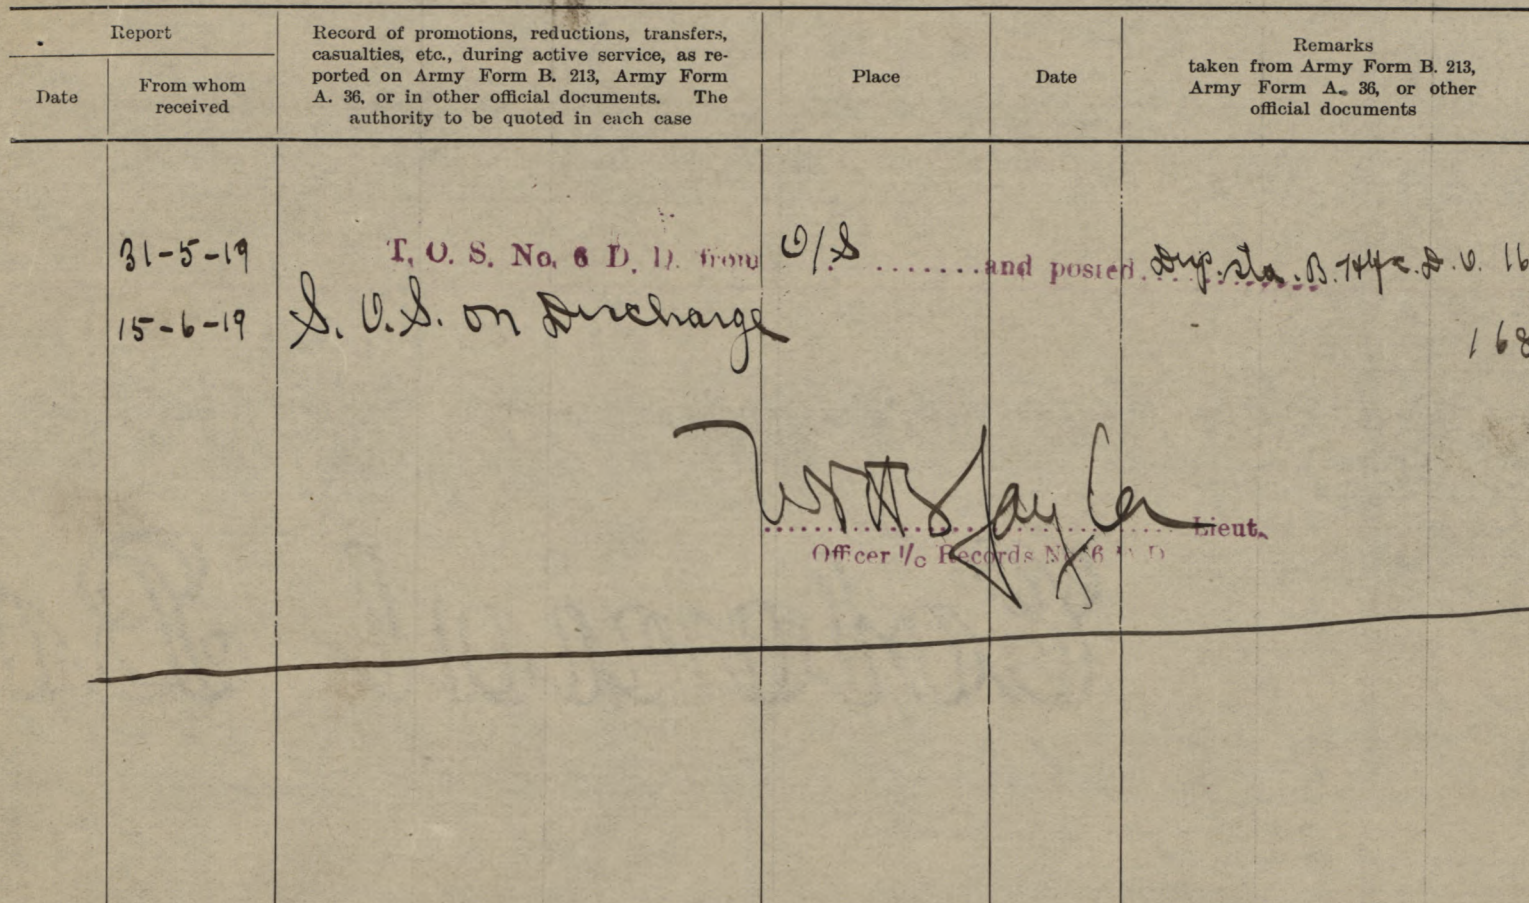 Report
Date
From whom
received
Record of promotions, reductions, transfers,
casualties, etc., during active service, as re-
ported on Army Form B. 213, Army Form
A. 36, or in other official documents. The
authority to be quoted in each case
Place
Date
Remarks
taken from Army Form B. 213,
Army Form A. 36, or other
official documents
31-5-19 T. O. S. No. 6 D. D. from O/S and posted Disp. Sta. B. D. O. 16
15-6-19 S. O. S. on Discharge 168
Lieut.
Officer I/c Records No. 6 D D